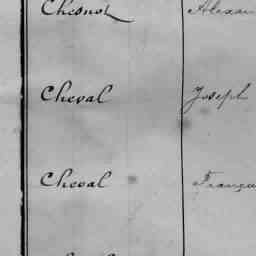 Chesnot Alexan
Cheval Joseph
Cheval Franço